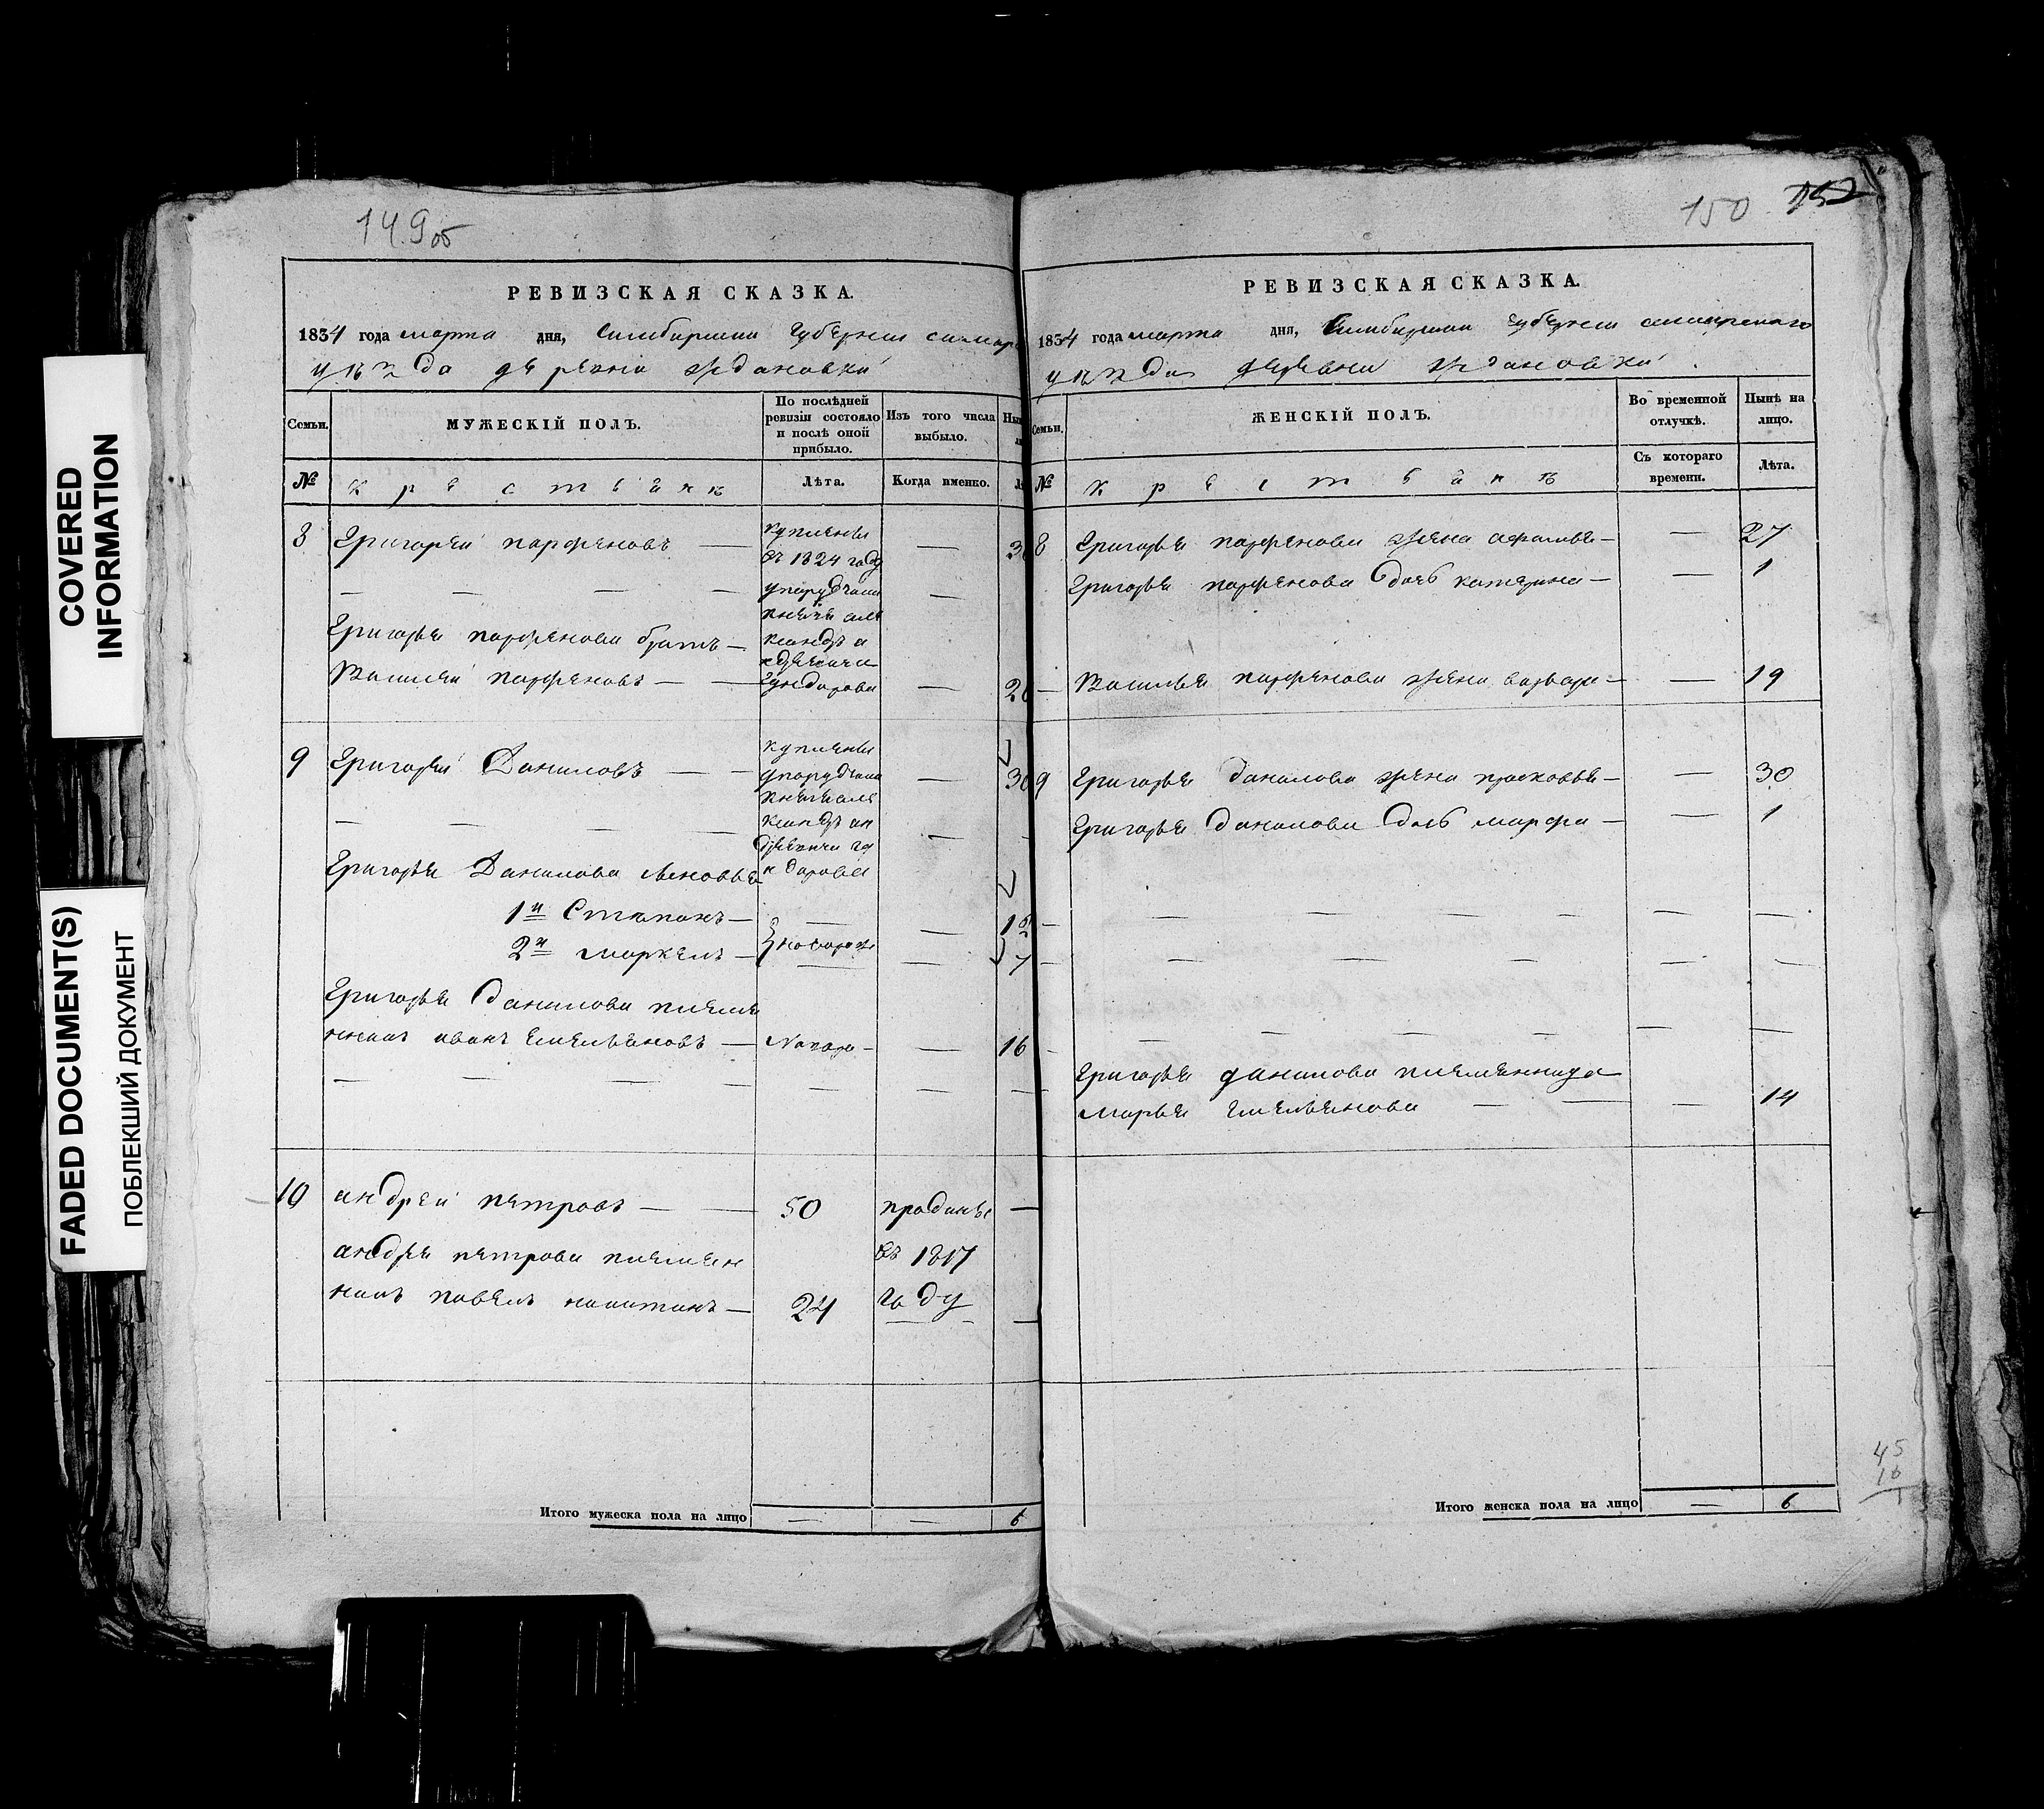 COVERED
INFORMATION
FADED DOCUMENT(S)
ПОБЛЕКШИЙ ДОКУМЕНТ
149об
РЕВИЗСКАЯ СКАЗКА.
1834 года марта дня, Симбирскои Губернии самар
уѣзда деревни ждановки
Семьи.
МУЖЕСКІЙ ПОЛЪ.
По послѣдней ревизіи состояло и послѣ оной прибыло.
Изъ того числа выбыло.
№
крестьянъ
Лѣта.
Когда именно.
8 Григореи парфеновъ — купленны —
въ 1824 году
упорудчика
Григорья парфенова братъ —
Василеи парфеновъ — — —
9 Григореи Даниловъ — — купленны —
упорудчика
Григорья Данилова сыновья
1й Степанъ —
2й маркелъ — 7
Григорья данилова племя
нникъ иванъ емельяновъ — — 16
10 андреи петровъ — 50 проданы —
андрея петрова племен
въ 1817
никъ павелъ никитинъ — 24 году —
Итого мужеска пола на лицо — — 6
150 152
РЕВИЗСКАЯ СКАЗКА.
1834 года марта дня, Симбирскои губернии самарскаго
уѣзда деревни ждановки
Семьи.
ЖЕНСКІЙ ПОЛЪ.
Во временной отлучкѣ.
Нынѣ на лицо.
№
крестьянъ
Съ котораго времени.
Лѣта.
8 Григорья парфенова жена — — 27
Григорья парфенова дочь катерина — — 1
— Василья парфенова жена варвара — — 19
9 Григорья данилова жена прасковья — — 30
Григорья данилова дочь марфа — — 1
Григорья данилова племянница
марья емельянова — — — 14
Итого женска пола на лицо — 6
45
16